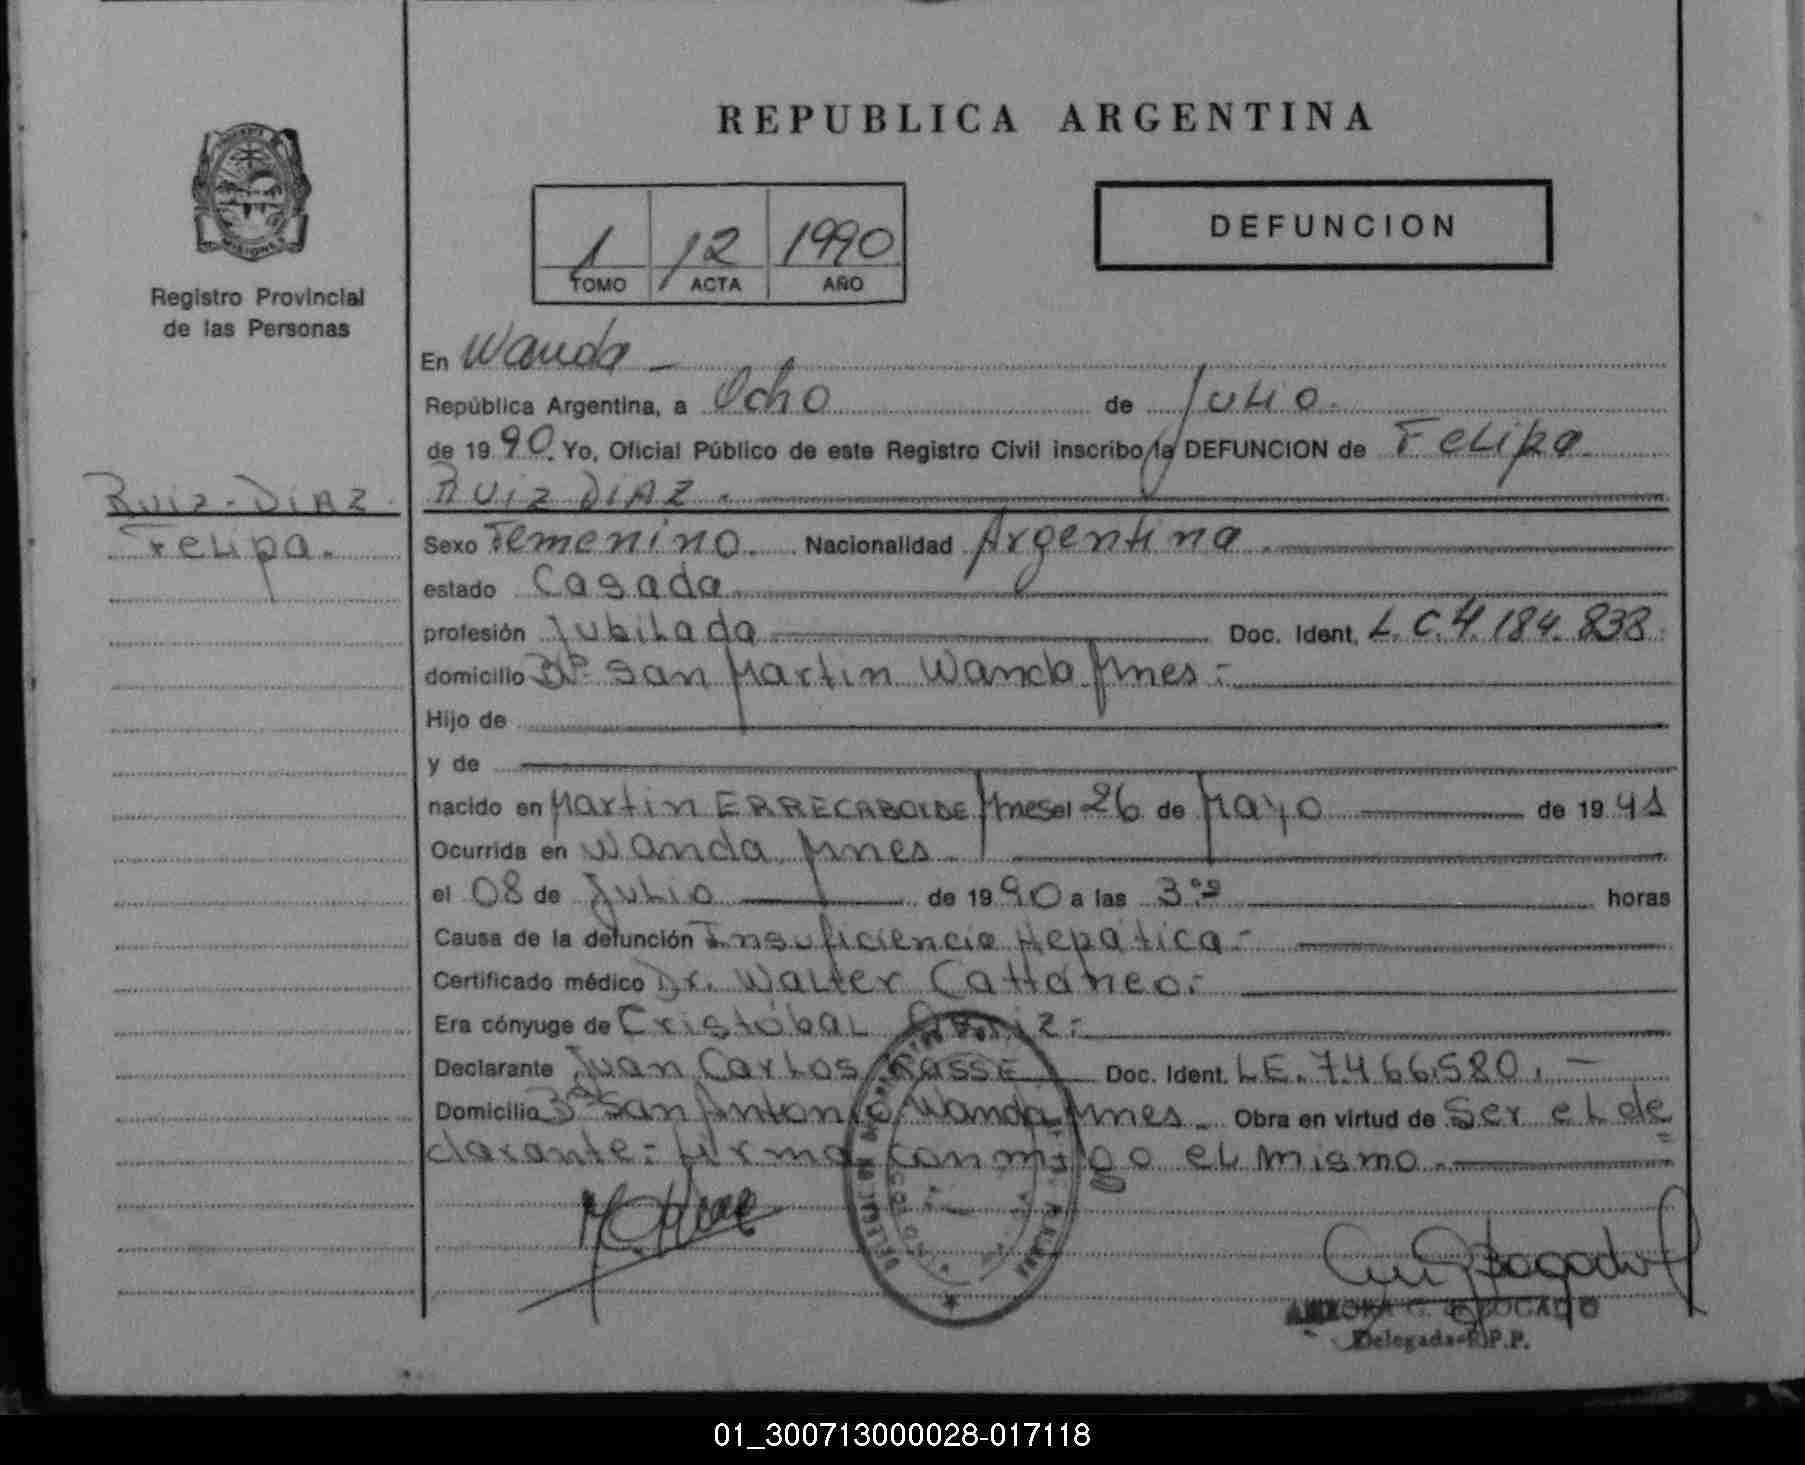 REPUBLICA ARGENTINA
MISIONES
Registro Provincial
de las Personas
1 12 1990
TOMO ACTA AÑO
DEFUNCION
En Wanda
República Argentina, a Ocho de Julio.
de 1990. Yo, Oficial Público de este Registro Civil inscribo la DEFUNCION de Felipa
RUIZ DIAZ.
RUIZ-DIAZ
Felipa.
Sexo Femenino. Nacionalidad Argentina.
estado Casada
profesión Jubilada Doc. Ident. L.C.4.184.838
domicilio Bº San Martin Wanda Mnes:
Hijo de
y de
nacido en Martin ERRECABOIDE Mnes el 26 de Mayo de 1941
Ocurrida en Wanda Mnes
el 08 de Julio de 1990 a las 3ºº horas
Causa de la defunción Insuficiencia Hepática-
Certificado médico Dr. Walter Cattáneo:
Era cónyuge de Cristóbal
Declarante Juan Carlos RASSE Doc. Ident. LE. 7.466.580.-
Domicilio Bº San Antonio Wanda Mnes. Obra en virtud de Ser el de
clarante: Firma conmigo el mismo.
C. BOGADO
Delegada-R.P.P.
01_300713000028-017118